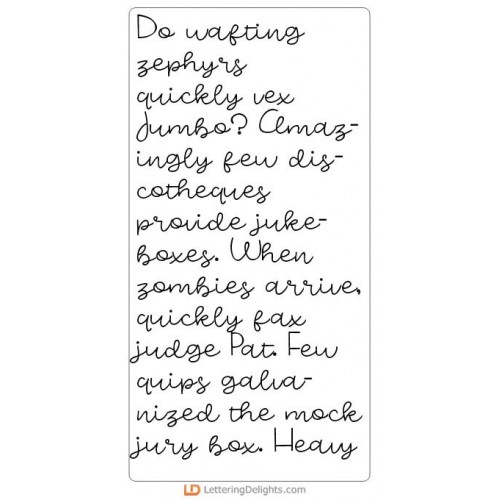 Do wafting
zephyrs
quickly vex
Jumbo? Amaz-
ingly few dis-
cotheques
provide juke-
boxes. When
zombies arrive,
quickly fax
judge Pat. Few
quips galva-
nized the mock
jury box. Heavy
LD LetteringDelights.com